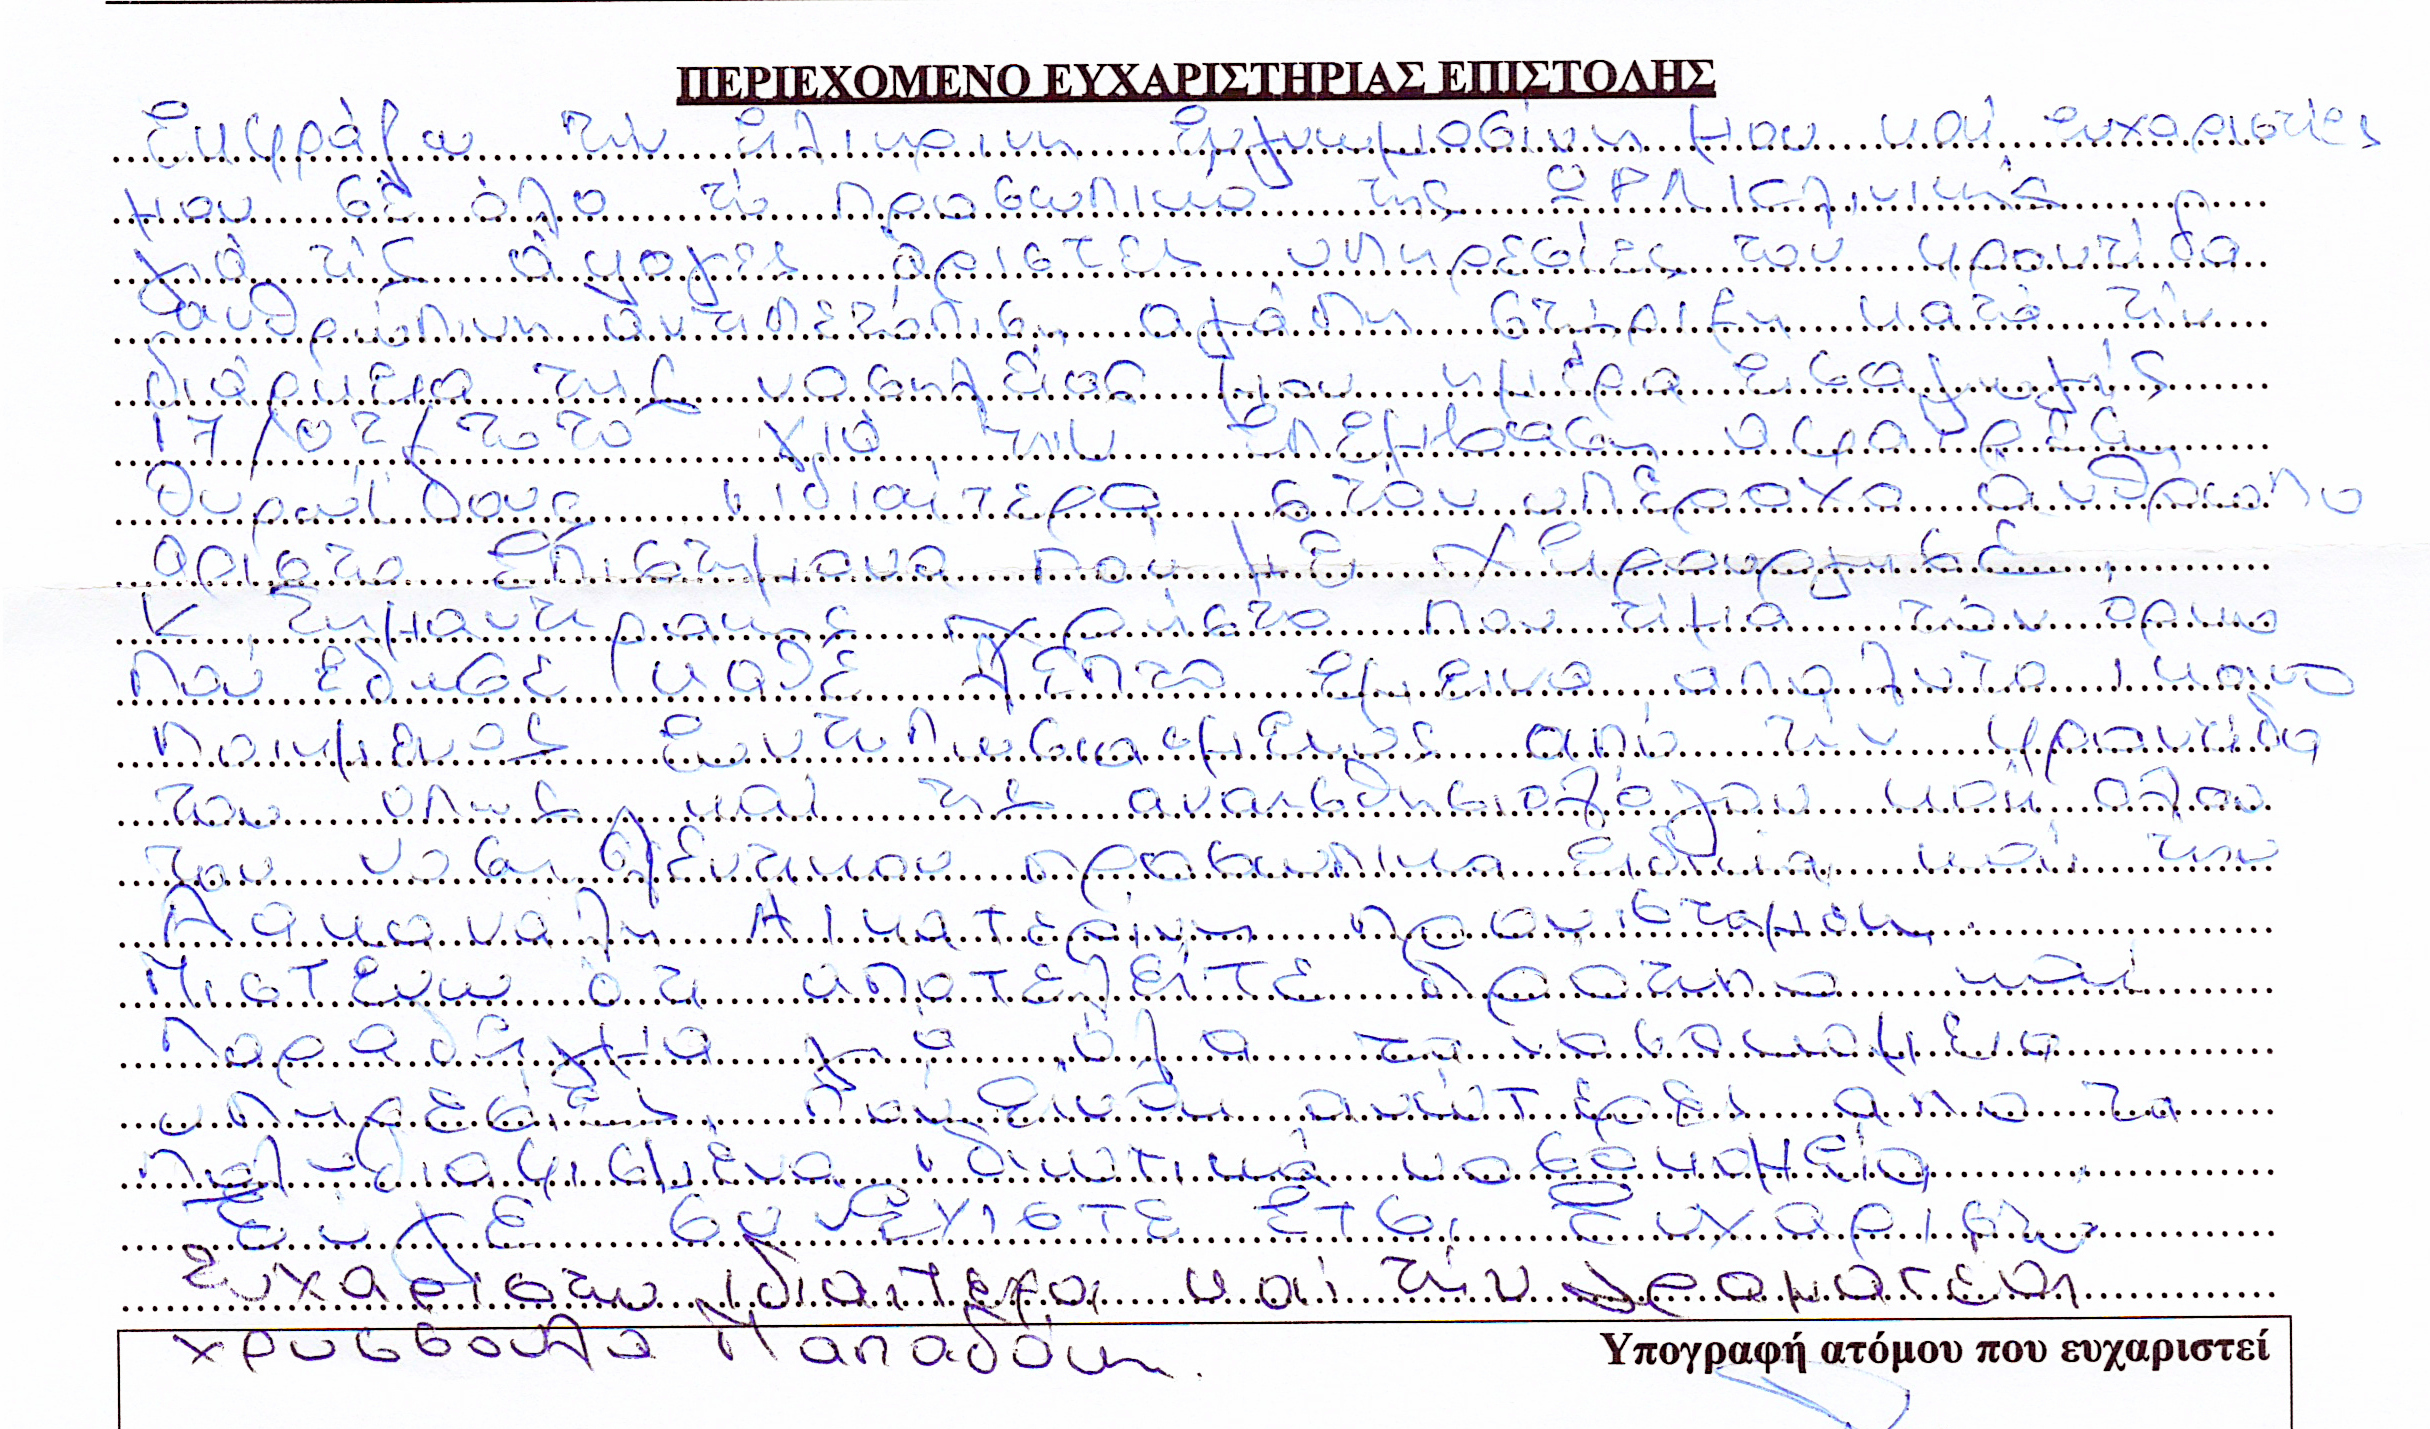 ΠΕΡΙΕΧΟΜΕΝΟ ΕΥΧΑΡΙΣΤΗΡΙΑΣ ΕΠΙΣΤΟΛΗΣ
Εκφράζω την ειλικρινη ευγνωμοσύνη μου καί ευχαριστίες
μου σέ όλο τό προσωπικό της ΩΡΛ Κλινικής
γιά τίς άψογες άριστες υπηρεσίες του φροντίδα
ανθρώπινη αντιμετώπιση αγάπη στήριξη κατά τήν
διάρκεια της νοσηλείας μου ημέρα εισαγωγής
17/02/2020 γιά την επέμβαση αφαιρεση
θυρωείδους ιδιαίτερα στόν υπέροχο ανθρωπο
άριστο Επιστήμονα πού με χειρουργησε
Κ Σημαντηρακης Χρήστο που τιμά τόν όρκο
πού έδωσε κάθε λεπτό έμεινα απολυτα ικανο
ποιημενος εντυπωσιασμένος από τήν φροντίδα
του οπως καί της αναισθησιολόγου καί ολου
του νοσηλευτικου προσωπικο καί την
Αικατερίνη προϊσταμένη
Πιστευω ότι αποτελείτε πρότυπο καί
παραδειγμα γιά όλα τα νοσοκομεια
υπηρεσίες πού είναι ανώτερες απο τα
πολυδιαφημισμένα ιδιωτικά νοσοκομεία
Συνεχιστε ετσι Ευχαριστω
Ευχαριστω ιδιαιτερα καί τήν Γραματέα
χρυσσούλα Παπαδάκη.
Υπογραφή ατόμου που ευχαριστεί